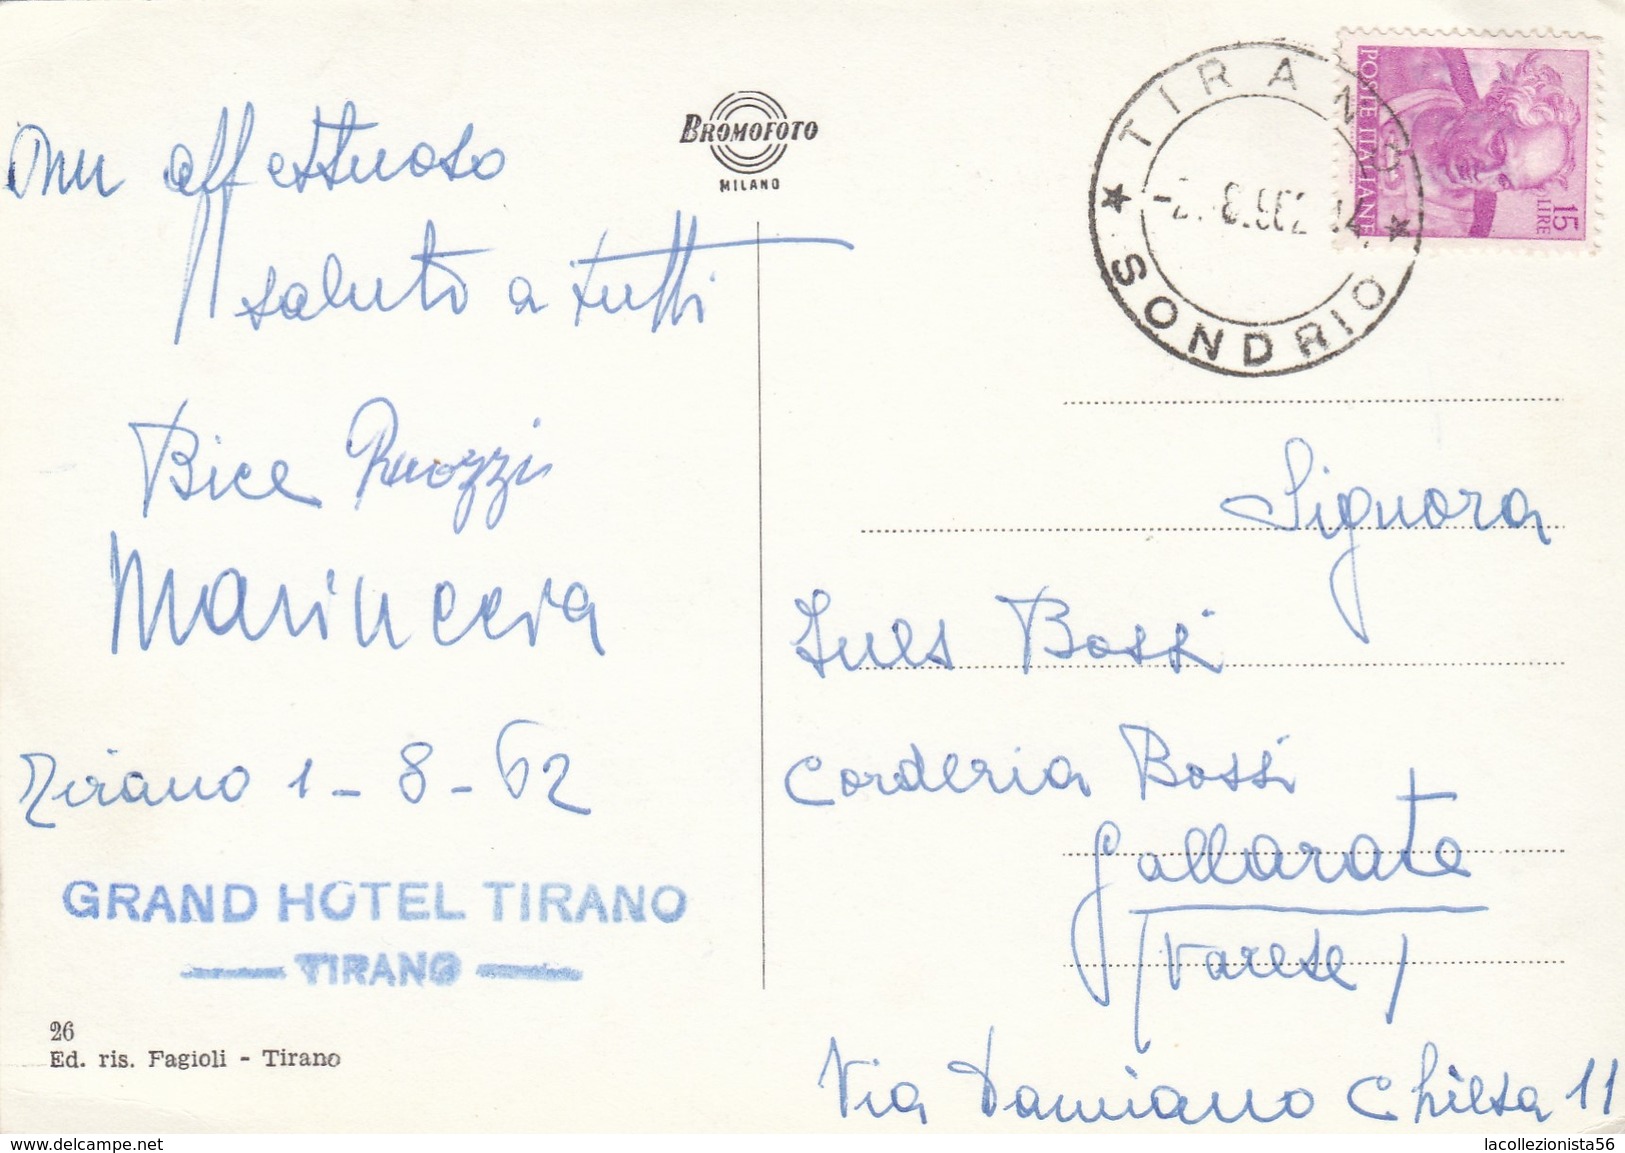 Un affettuoso
saluto a tutti
Bice Ruozzi
Tirano 1-8-62
GRAND HOTEL TIRANO
TIRANO
26
Ed. ris. Fagioli - Tirano
BROMOFOTO
MILANO
TIRANO
SONDRIO
POSTE ITALIANE
15
LIRE
Signora
Bossi
Corderia Bossi
Gallarate
(Varese)
Via Damiano Chiesa 11
www.delcampe.net
lacollezionista56